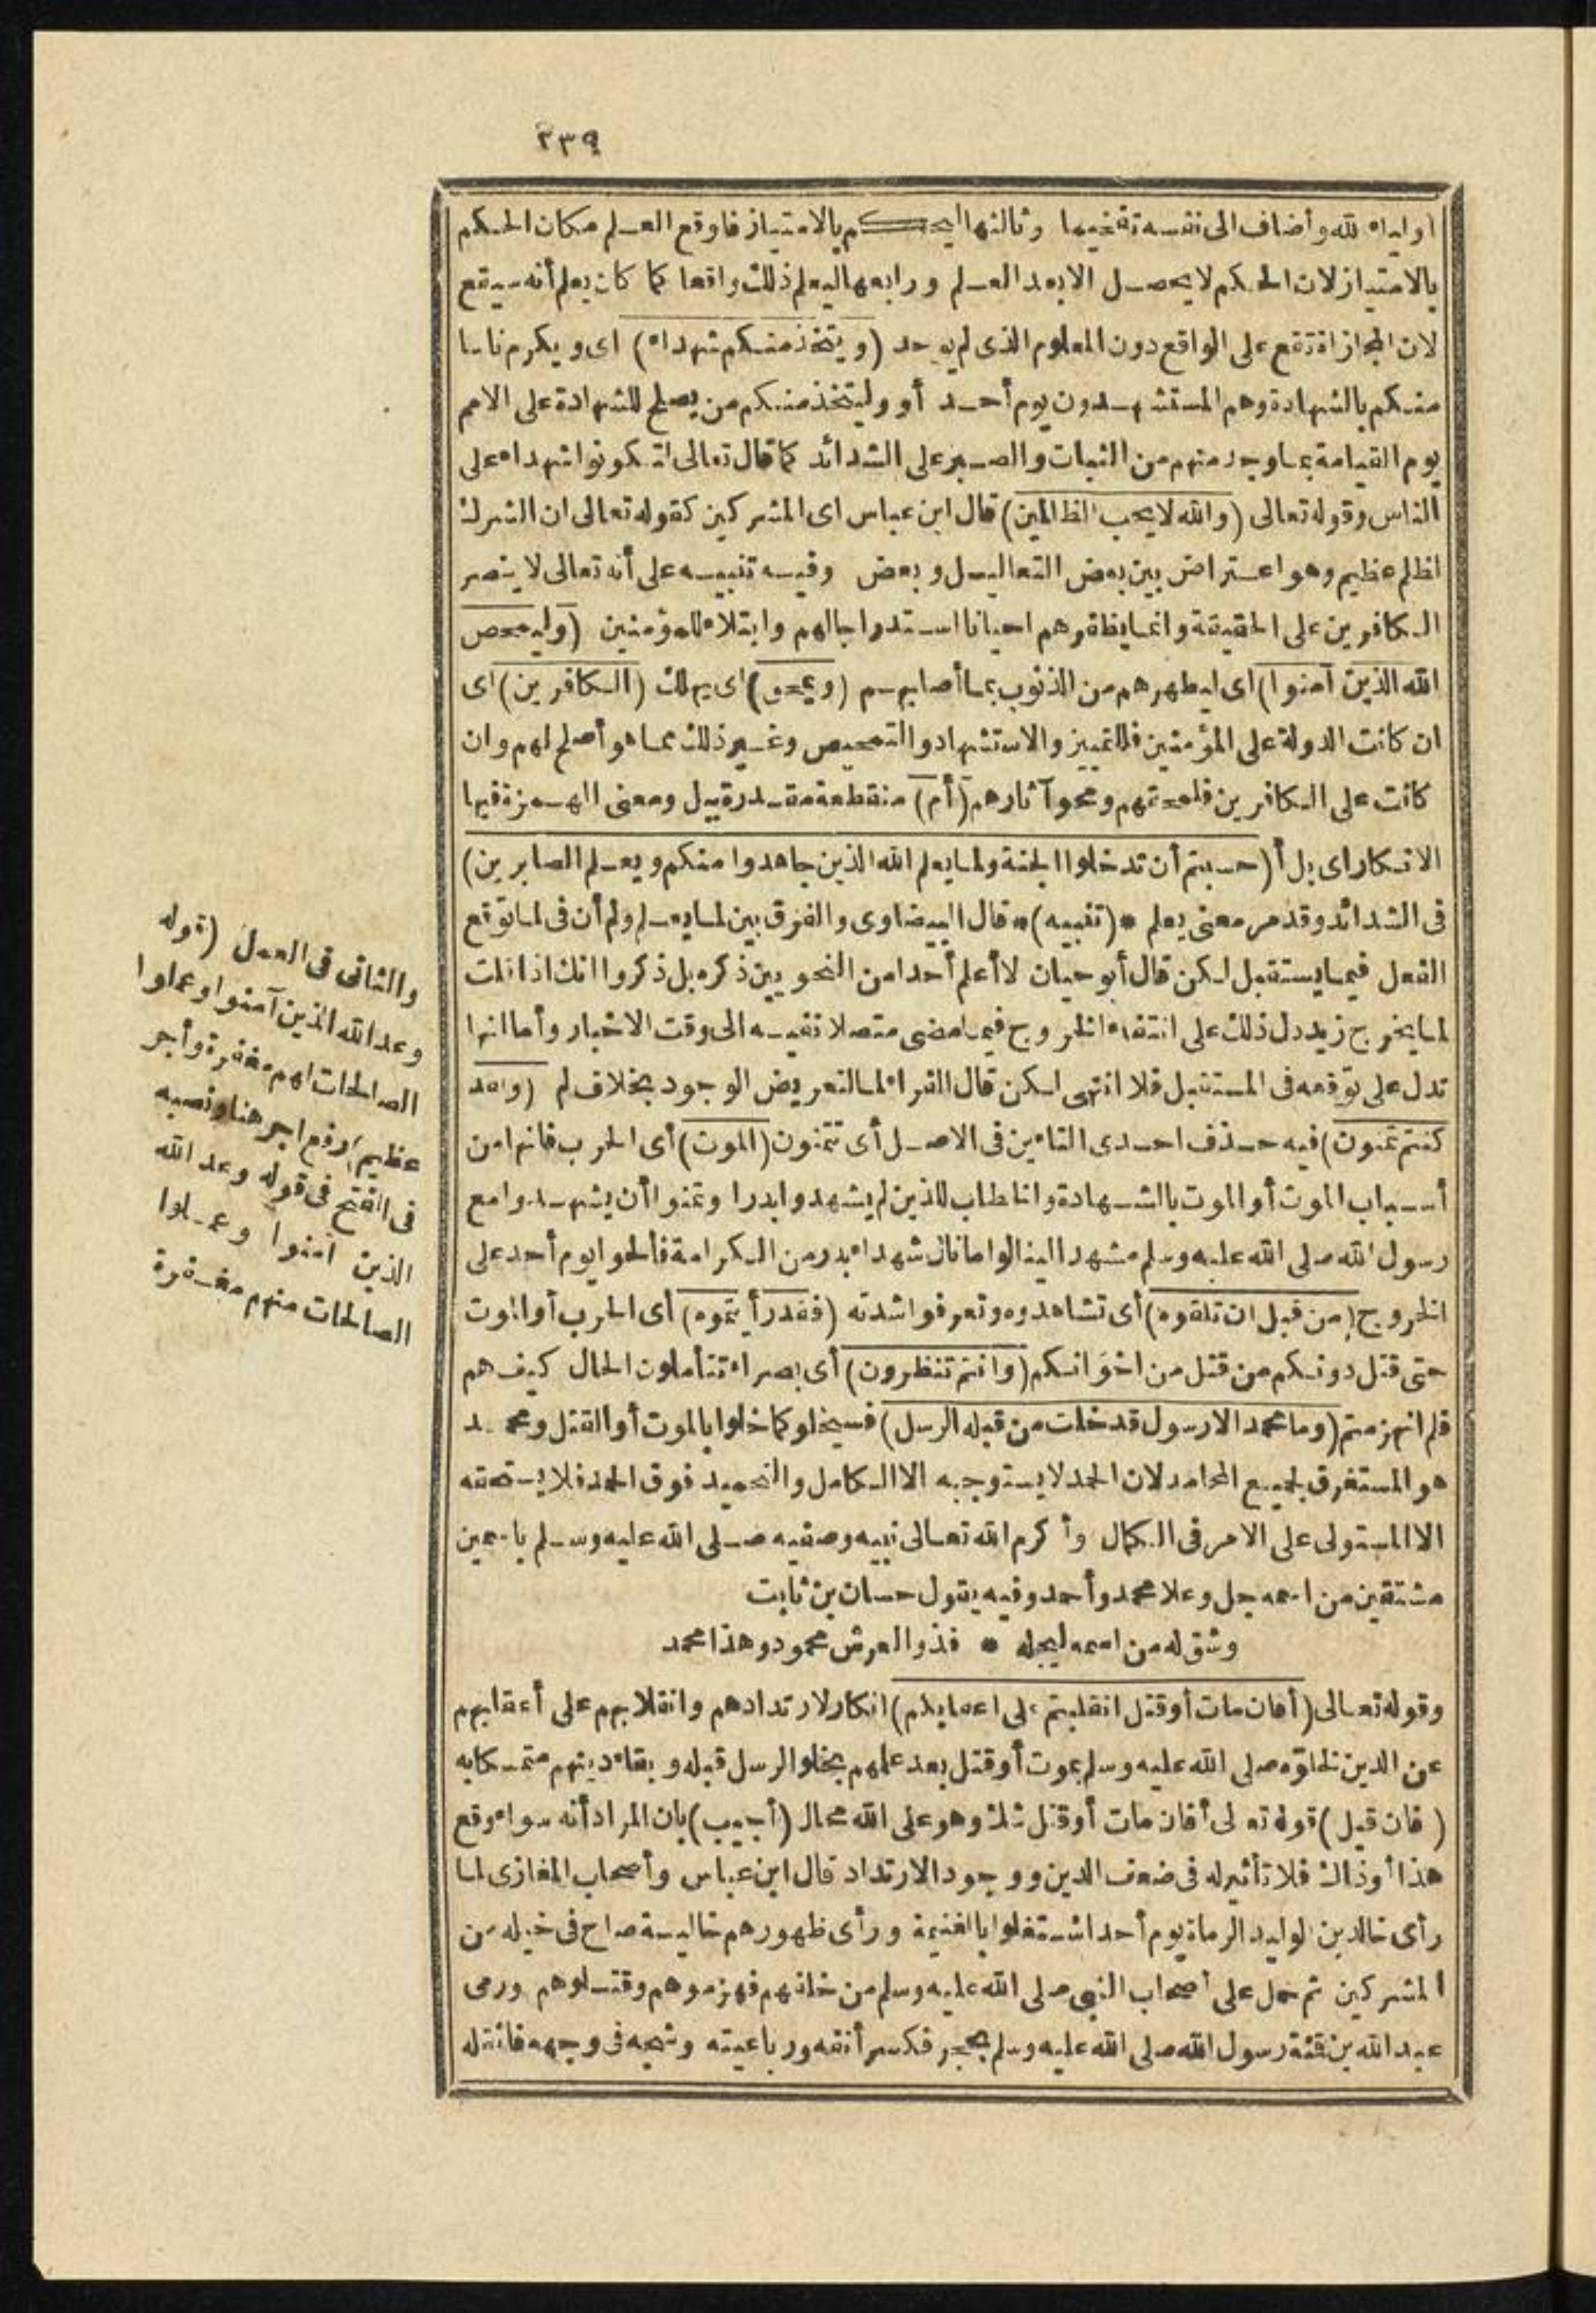 ٢٣٩
اولياء لله وأضاف الى نفسه تفخيما وثالثها ليحكم بالامتياز فاوقع العلم مكان الحكم
بالامتياز لان الحكم لا يحصل الا بعد العلم ورابعها ليعلم ذلك واقعا كما كان يعلم أنه سيقع
لان المجازاة تقع على الواقع دون المعلوم الذى لم يوجد (ويتخذ منكم شهداء) اى ويكرم ناسا
منكم بالشهادة وهم المستشهدون يوم أحد أو وليتخذ منكم من يصلح للشهادة على الامم
يوم القيامة بما وجد منهم من الثبات والصبر على الشدائد كما قال تعالى لتكونوا شهداء على
الناس وقوله تعالى (والله لا يحب الظالمين) قال ابن عباس اى المشركين كقوله تعالى ان الشرك
لظلم عظيم وهو اعتراض بين بعض التعاليل وبعض وفيه تنبيه على أنه تعالى لا ينصر
الكافرين على الحقيقة وانما يظفرهم احيانا استدراجا لهم وابتلاء للمؤمنين (وليمحص
الله الذين آمنوا) اى ليطهرهم من الذنوب بما أصابهم (ويمحق) اى يهلك (الكافرين) اى
ان كانت الدولة على المؤمنين فللتمييز والاستشهاد والتمحيص وغير ذلك مما هو أصلح لهم وان
كانت على الكافرين فلمحقهم ومحو آثارهم (أم) منقطعة مقدرة ببل ومعنى الهمزة فيها
الانكار اى بل أ (حسبتم أن تدخلوا الجنة ولما يعلم الله الذين جاهدوا منكم ويعلم الصابرين)
فى الشدائد وقد مر معنى يعلم * (تنبيه) * قال البيضاوى والفرق بين لما يعلم ولم أن فى لما توقع
الفعل فيما يستقبل لكن قال أبو حيان لا أعلم أحدا من النحويين ذكره بل ذكروا انك اذا قلت
لما يخرج زيد دل ذلك على انتفاء الخروج فيما مضى متصلا نفيه الى وقت الاخبار وأما انها
تدل على توقعه فى المستقبل فلا انتهى لكن قال الفراء لما لتعريض الوجود بخلاف لم (ولقد
كنتم تمنون) فيه حذف احدى التاءين فى الاصل أى تتمنون (الموت) أى الحرب فانها من
أسباب الموت أو الموت بالشهادة والخطاب للذين لم يشهدوا بدرا وتمنوا أن يشهدوا مع
رسول الله صلى الله عليه وسلم مشهدا لينالوا ما نال شهداء بدر من الكرامة فألحوا يوم أحد على
الخروج (من قبل ان تلقوه) أى تشاهدوه وتعرفوا شدته (فقد رأيتموه) أى الحرب أو الموت
حتى قتل دونكم من قتل من اخوانكم (وانتم تنظرون) أى بصراء تتأملون الحال كيف هم
فلم انهزمتم (وما محمد الا رسول قد خلت من قبله الرسل) فسيخلو كما خلوا بالموت أو القتل ومحمد
هو المستغرق لجميع المحامد لان الحمد لا يستوجبه الا الكامل والتحميد فوق الحمد فلا يستحقه
الا المستولى على الامر فى الكمال وأكرم الله تعالى نبيه وصفيه صلى الله عليه وسلم باسمين
مشتقين من اسمه جل وعلا محمد وأحمد وفيه يقول حسان بن ثابت
وشق له من اسمه ليجله * فذو العرش محمود وهذا محمد
وقوله تعالى (أفان مات أو قتل انقلبتم على اعقابكم) انكار لارتدادهم وانقلابهم على أعقابهم
عن الدين لخلوّه صلى الله عليه وسلم بموت أو قتل بعد علمهم بخلو الرسل قبله وبقاء دينهم متمسكا به
(فان قيل) قوله تعالى أفان مات أو قتل شك وهو على الله محال (أجيب) بان المراد أنه سواء وقع
هذا أو ذاك فلا تأثير له فى ضعف الدين ووجود الارتداد قال ابن عباس وأصحاب المغازى لما
رأى خالد بن الوليد الرماة يوم أحد اشتغلوا بالغنيمة ورأى ظهورهم خالية صاح فى خيله من
المشركين ثم حمل على أصحاب النبى صلى الله عليه وسلم من خلفهم فهزموهم وقتلوهم ورمى
عبد الله بن قمئة رسول الله صلى الله عليه وسلم بحجر فكسر أنفه ورباعيته وشجه فى وجهه فاثقله
والثانى فى العمل (قوله
وعد الله الذين آمنوا وعملوا
الصالحات لهم مغفرة وأجر
عظيم) رفع اجر هنا ونصبه
فى الفتح فى قوله وعد الله
الذين آمنوا وعملوا
الصالحات منهم مغفرة